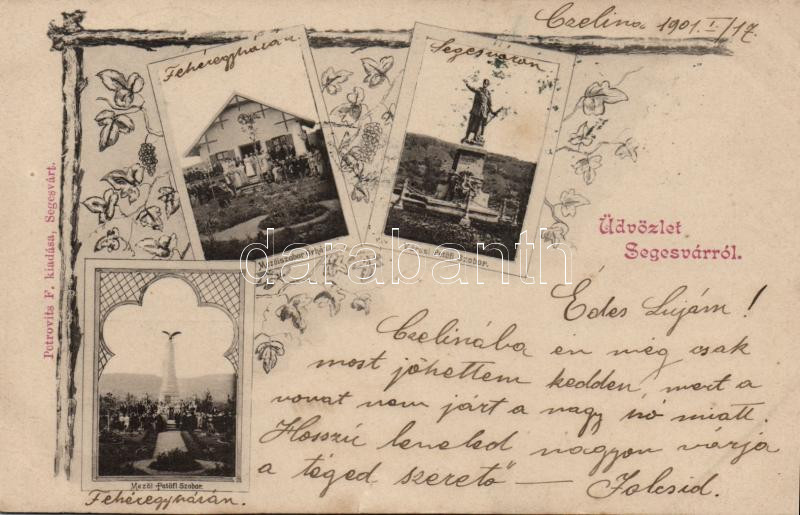 Czelina 1901. I/17.
Fehéregyházán
Segesváron
Petrovits F. kiadása, Segesvárt.
Városi Petőfi Szobor.
Üdvözlet
Segesvárról.
darabanth
Mezői Petőfi Szobor.
Fehéregyházán.
Édes Lujám!
Czelinába én még csak
most jöhettem kedden, mert a
vonat nem járt a nagy hó miatt.
Hosszú leveled nagyon várja
a téged szerető — Jolcsid.